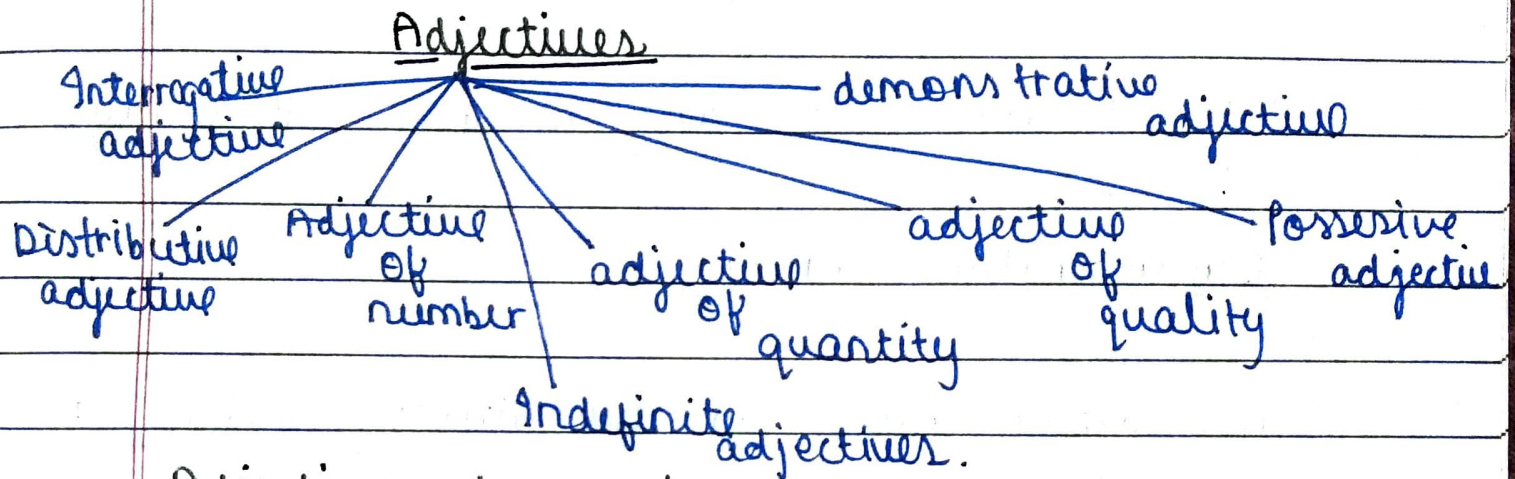 Adjectives
Interrogative
adjective
demonstrative
adjective
Distributive
adjective
Adjective
of
number
adjective
of
quantity
adjective
of
quality
Possesive
adjective
Indefinite
adjectives.